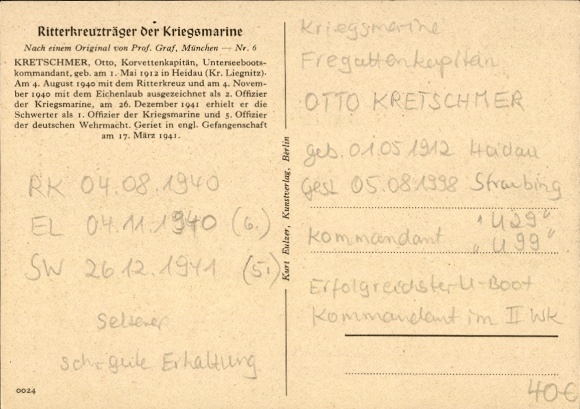 Ritterkreuzträger der Kriegsmarine
Nach einem Original von Prof. Graf, München — Nr. 6
KRETSCHMER, Otto, Korvettenkapitän, Unterseeboots-
kommandant, geb. am 1. Mai 1912 in Heidau (Kr. Liegnitz).
Am 4. August 1940 mit dem Ritterkreuz und am 4. Novem-
ber 1940 mit dem Eichenlaub ausgezeichnet als 2. Offizier
der Kriegsmarine, am 26. Dezember 1941 erhielt er die
Schwerter als 1. Offizier der Kriegsmarine und 5. Offizier
der deutschen Wehrmacht. Geriet in engl. Gefangenschaft
am 17. März 1941.
RK 04.08.1940
EL 04.11.1940 (6.)
SW 26.12.1941 (5.)
Seltener
sehr gute Erhaltung
0024
Kurt Eulzer, Kunstverlag, Berlin
Kriegsmarine
Fregattenkapitän
OTTO KRETSCHMER
geb. 01.05.1912 Heidau
gest. 05.08.1998 Straubing
"U29"
Kommandant "U99"
Erfolgreichster U-Boot
Kommandant im II WK
40€